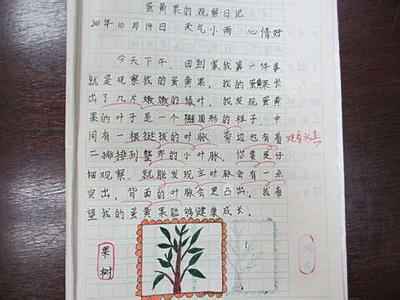 蛋黄果的观察日记
10月19日 天气小雨 心情好
今天下午,回到家我第一件事
就是观察我的蛋黄果,我的蛋黄果长
出了几片嫩嫩的绿叶,我发现蛋黄
果的叶子是一个椭圆形的样子,中
间有一根挺拔的叶脉,旁边也有着
二排排列整齐的小叶脉,你要是仔
细观察,就能发现主叶脉会有一点
突出,背面的叶脉会更凸出,我希
望我的蛋黄果能够健康成长。
果树